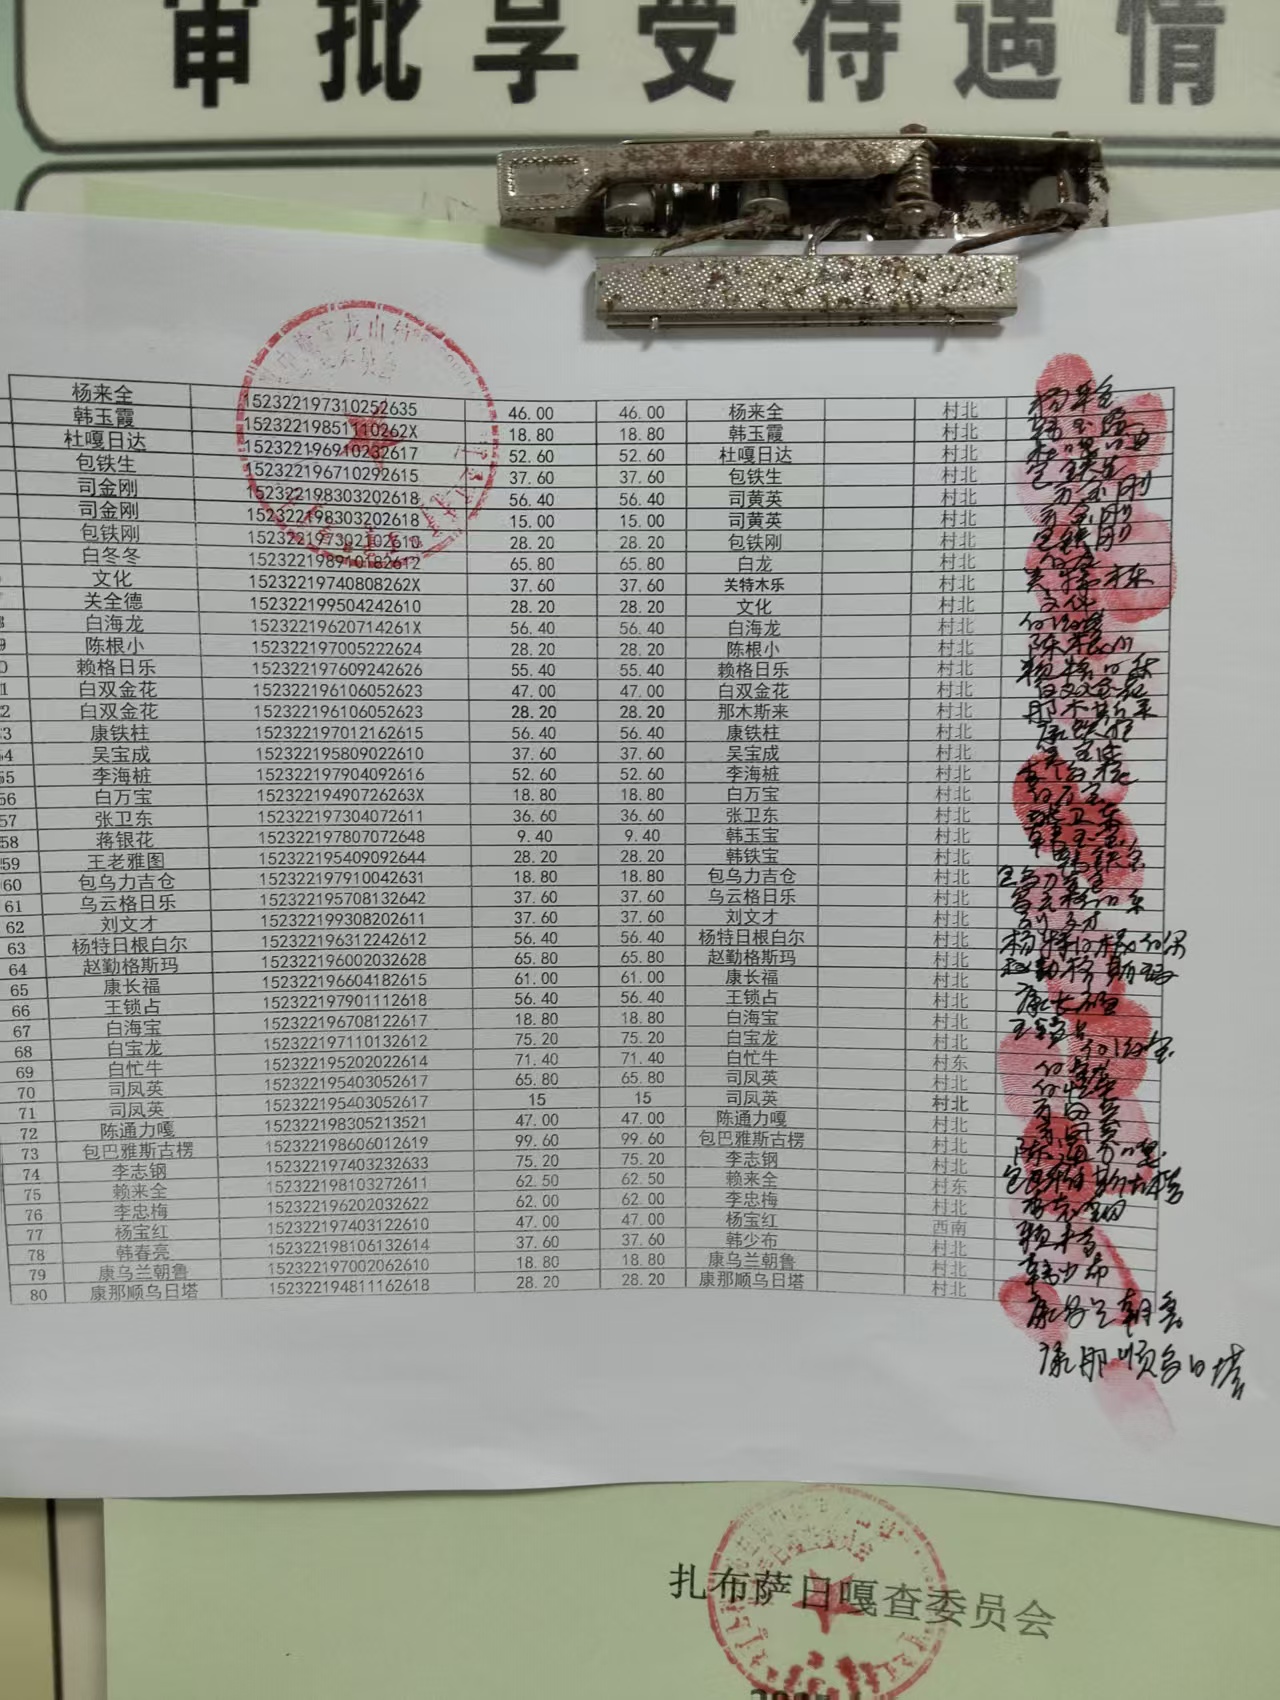 审批享受待遇情
杨来全 152322197310252635 46.00 46.00 杨来全 村北
韩玉霞 15232219851110262X 18.80 18.80 韩玉霞 村北
杜嘎日达 152322196910232617 52.60 52.60 杜嘎日达 村北
包铁生 152322196710292615 37.60 37.60 包铁生 村北
司金刚 152322198303202618 56.40 56.40 司黄英 村北
司金刚 152322198303202618 15.00 15.00 司黄英 村北
包铁刚 152322197302102610 28.20 28.20 包铁刚 村北
白冬冬 152322198910182612 65.80 65.80 白龙 村北
文化 15232219740808262X 37.60 37.60 关特木乐 村北
关全德 152322199504242610 28.20 28.20 文化 村北
白海龙 15232219620714261X 56.40 56.40 白海龙 村北
陈根小 152322197005222624 28.20 28.20 陈根小 村北
赖格日乐 152322197609242626 55.40 55.40 赖格日乐 村北
白双金花 152322196106052623 47.00 47.00 白双金花 村北
白双金花 152322196106052623 28.20 28.20 那木斯来 村北
康铁柱 152322197012162615 56.40 56.40 康铁柱 村北
吴宝成 152322195809022610 37.60 37.60 吴宝成 村北
55 李海桩 152322197904092616 52.60 52.60 李海桩 村北
56 白万宝 15232219490726263X 18.80 18.80 白万宝 村北
57 张卫东 152322197304072611 36.60 36.60 张卫东 村北
58 蒋银花 152322197807072648 9.40 9.40 韩玉宝 村北
59 王老雅图 152322195409092644 28.20 28.20 韩铁宝 村北
60 包乌力吉仓 152322197910042631 18.80 18.80 包乌力吉仓 村北
61 乌云格日乐 152322195708132642 37.60 37.60 乌云格日乐 村北
62 刘文才 152322199308202611 37.60 37.60 刘文才 村北
63 杨特日根白尔 152322196312242612 56.40 56.40 杨特日根白尔 村北
64 赵勤格斯玛 152322196002032628 65.80 65.80 赵勤格斯玛 村北
65 康长福 152322196604182615 61.00 61.00 康长福 村北
66 王锁占 152322197901112618 56.40 56.40 王锁占 村北
67 白海宝 152322196708122617 18.80 18.80 白海宝 村北
68 白宝龙 152322197110132612 75.20 75.20 白宝龙 村北
69 白忙牛 152322195202022614 71.40 71.40 白忙牛 村东
70 司凤英 152322195403052617 65.80 65.80 司凤英 村北
71 司凤英 152322195403052617 15 15 司凤英 村北
72 陈通力嘎 152322198305213521 47.00 47.00 陈通力嘎 村北
73 包巴雅斯古楞 152322198606012619 99.60 99.60 包巴雅斯古楞 村北
74 李志钢 152322197403232633 75.20 75.20 李志钢 村北
75 赖来全 152322198103272611 62.50 62.50 赖来全 村东
76 李忠梅 152322196202032622 62.00 62.00 李忠梅 村北
77 杨宝红 152322197403122610 47.00 47.00 杨宝红 西南
78 韩春亮 152322198106132614 37.60 37.60 韩少布 村北
79 康乌兰朝鲁 152322197002062610 18.80 18.80 康乌兰朝鲁 村北
80 康那顺乌日塔 152322194811162618 28.20 28.20 康那顺乌日塔 村北
韩少布
康乌兰朝鲁
康那顺乌日塔
扎布萨日嘎查委员会